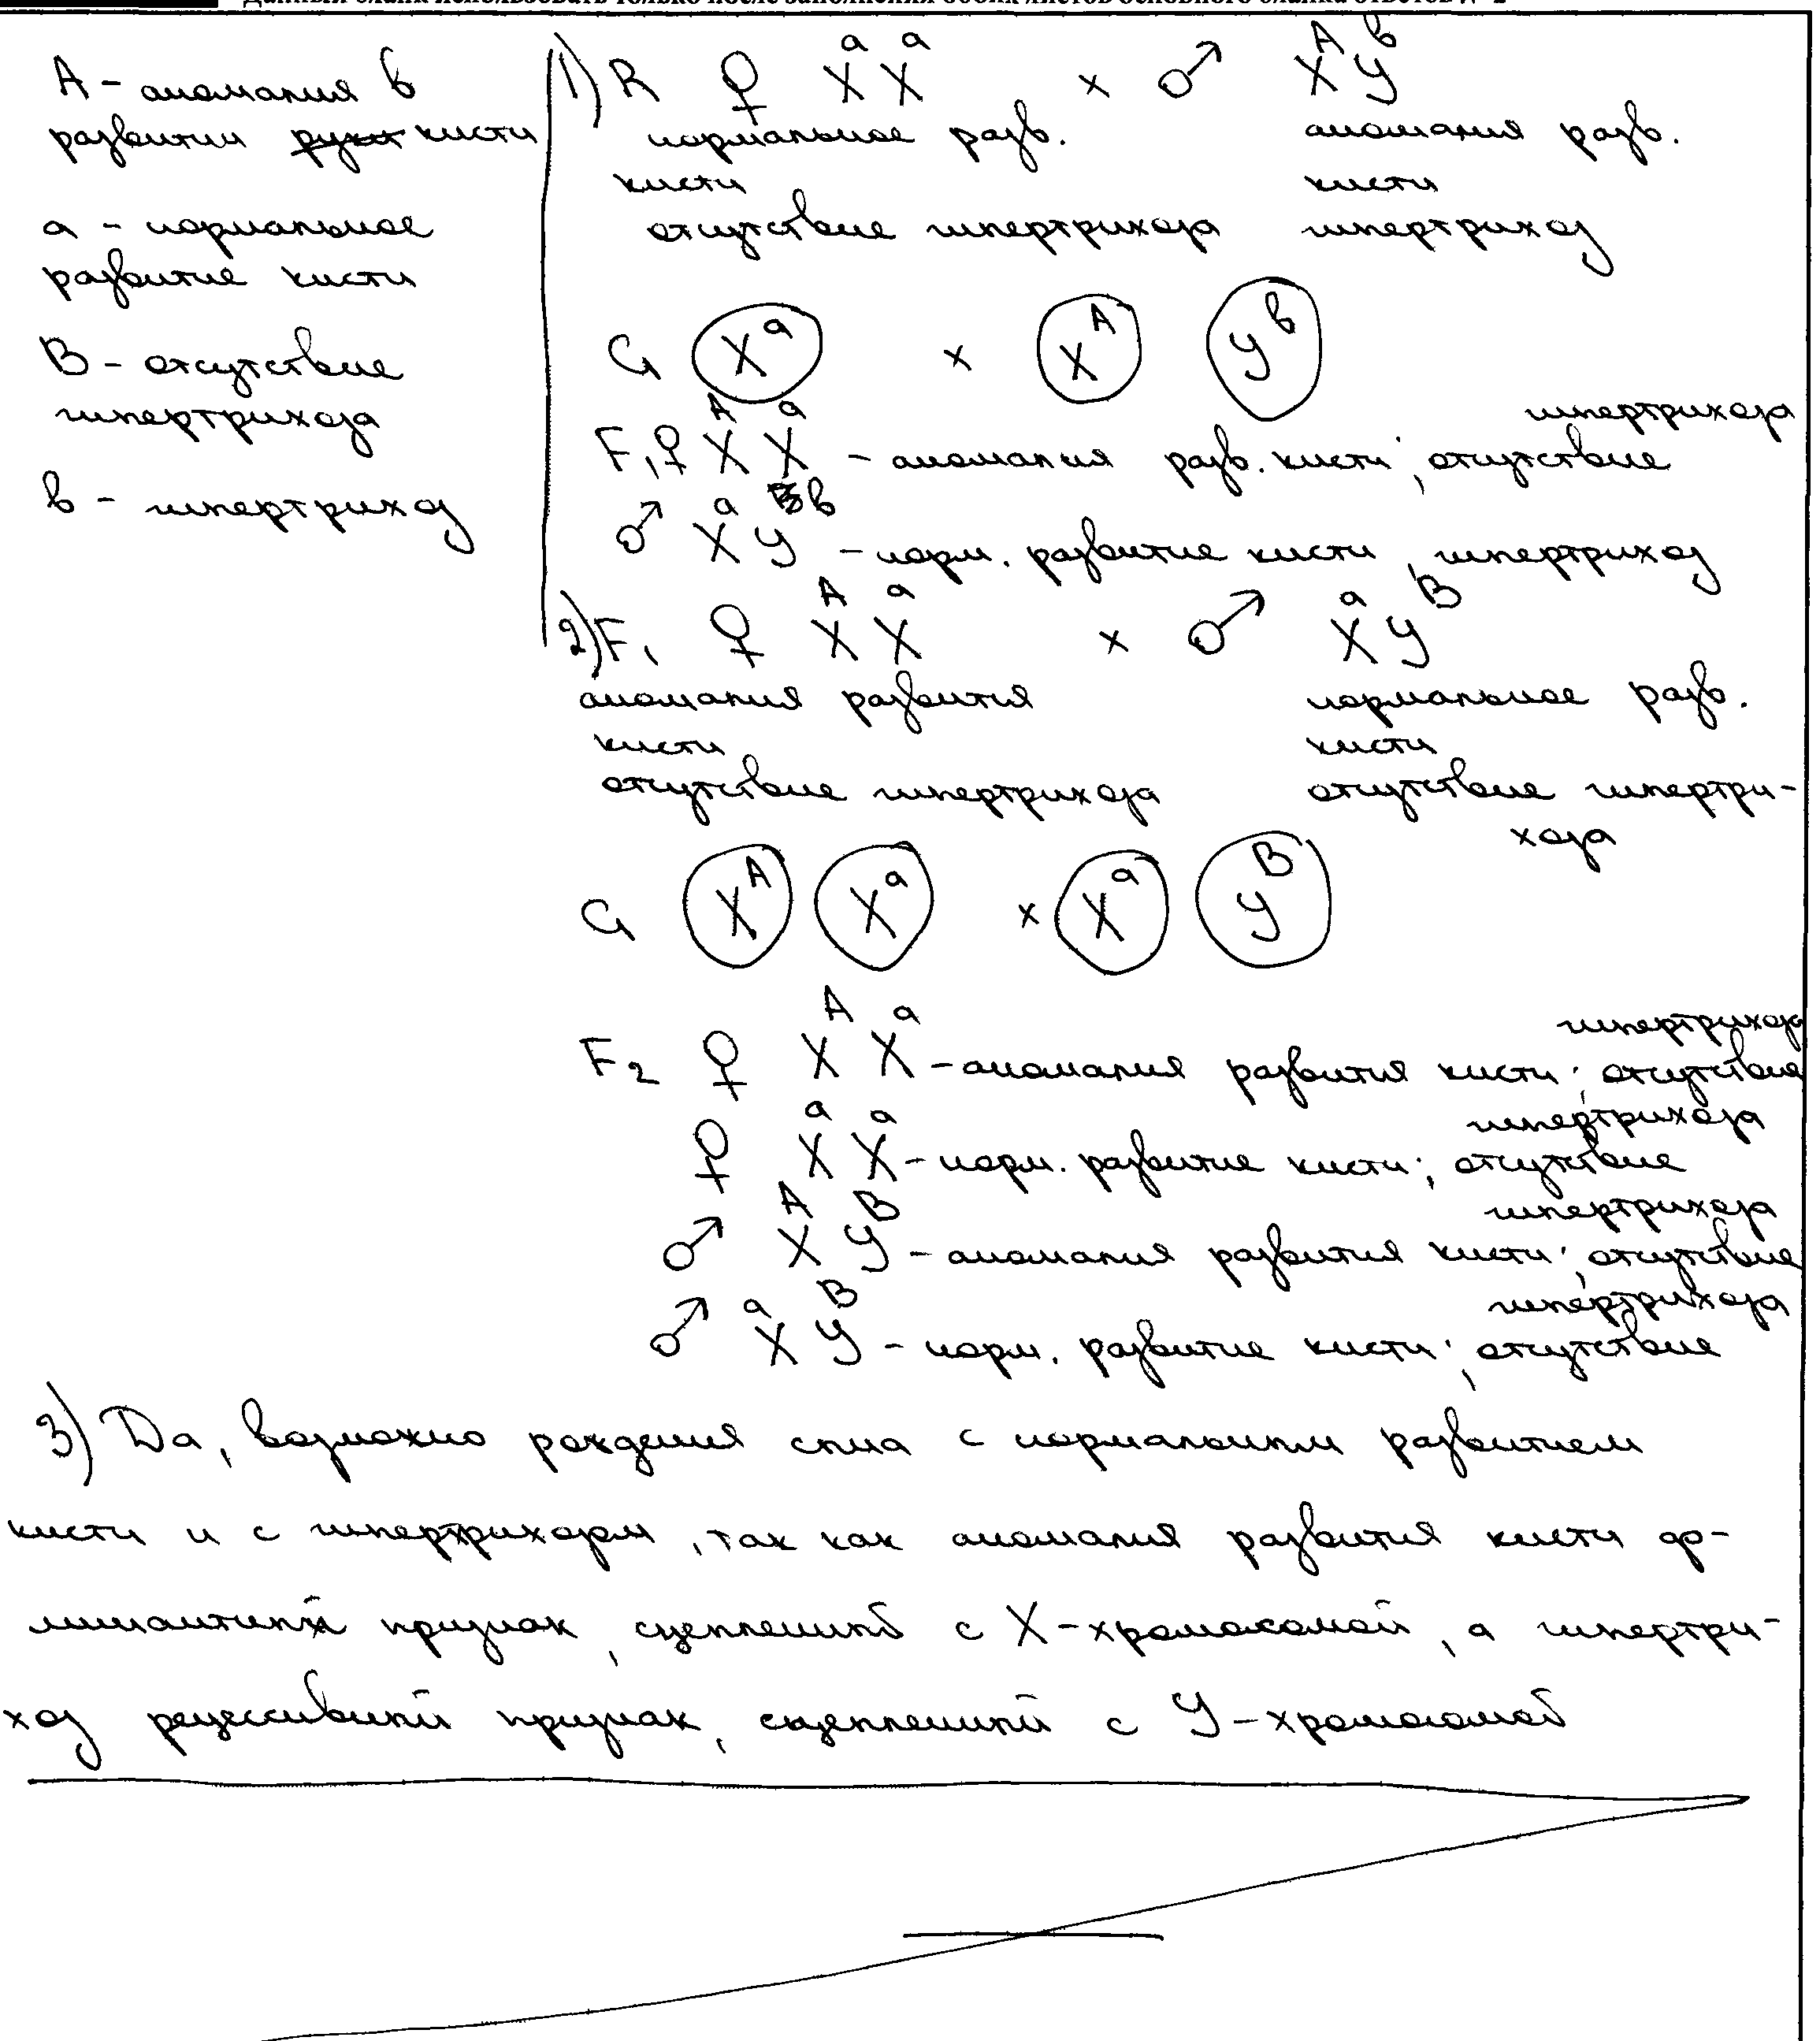 А - аномалия в
развитии руки кисти
а - нормальное
развитие кисти
В - отсутствие
гипертрихоза
в - гипертрихоз
1) P ♀ XᵃXᵃ × ♂ XᴬYᵇ
нормальное разв. аномалия разв.
кисти кисти
отсутствие гипертрихоза гипертрихоз
G Xᵃ × Xᴬ Yᵇ
гипертрихоза
F₁ ♀ XᴬXᵃ - аномалия разв. кисти; отсутствие
♂ XᵃYᵇ - норм. развитие кисти, гипертрихоз
2) F₁ ♀ XᴬXᵃ × ♂ XᵃYᴮ
аномалия развития нормальное разв.
кисти кисти
отсутствие гипертрихоза отсутствие гипертри-
хоза
G Xᴬ Xᵃ × Xᵃ Yᴮ
гипертрихоза
F₂ ♀ XᴬXᵃ - аномалия развития кисти; отсутствие
гипертрихоза
♀ XᵃXᵃ - норм. развитие кисти; отсутствие
гипертрихоза
♂ XᴬYᴮ - аномалия развития кисти; отсутствие
гипертрихоза
♂ XᵃYᴮ - норм. развитие кисти; отсутствие
3) Да, возможно рождения сына с нормальным развитием
кисти и с гипертрихозом, так как аномалия развития кисти до-
минантный признак, сцепленный с X-хромосомой, а гипертри-
хоз рецессивный признак, сцепленный с Y-хромосомой